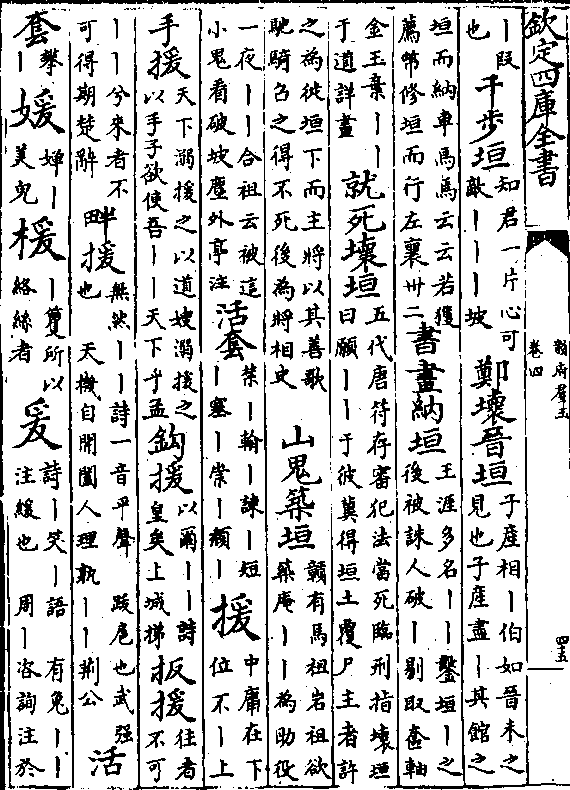 欽定四庫全書
韻府羣玉
卷四
四五
丨段也 千步垣 知君一片心可敵丨丨丨坡 鄭壞晉垣 子産相丨伯如晉未之見也子産盡丨其館之
垣而納車馬馬云云若獲薦幣修垣而行左襄卅二 書畫納垣 王涯多名丨丨鑿垣丨之後被誅人破丨剔取奩軸
金玉棄丨丨于道詳畫 就死壞垣 五代唐符存審犯法當死臨刑指壞垣曰願丨丨于彼冀得垣土覆尸主者許
之為徙垣下而主將以其善歌馳騎召之得不死後為將相史 山鬼築垣 贛有馬祖岩祖欲築庵丨丨為助役
一夜丨丨合祖云被這小鬼看破坡塵外亭注 活套 柴丨翰丨諫丨短丨塞丨崇丨頹丨 援 中庸在下位不丨上
手援 天下溺援之以道嫂溺援之以手子欲使吾丨丨天下乎孟 鈎援 以爾丨丨詩皇矣上城梯 扳援 往者不可
丨丨兮來者不可得期楚辭 畔援 無然丨丨詩一音平聲 跋扈也武强也 天機自開闔人理孰丨丨荆公 活
套 攀丨 媛 嬋丨美皃 楥 丨籰所以絡絲者 爰 詩丨笑丨語 有兔丨丨注緩也 周丨咨詢注於